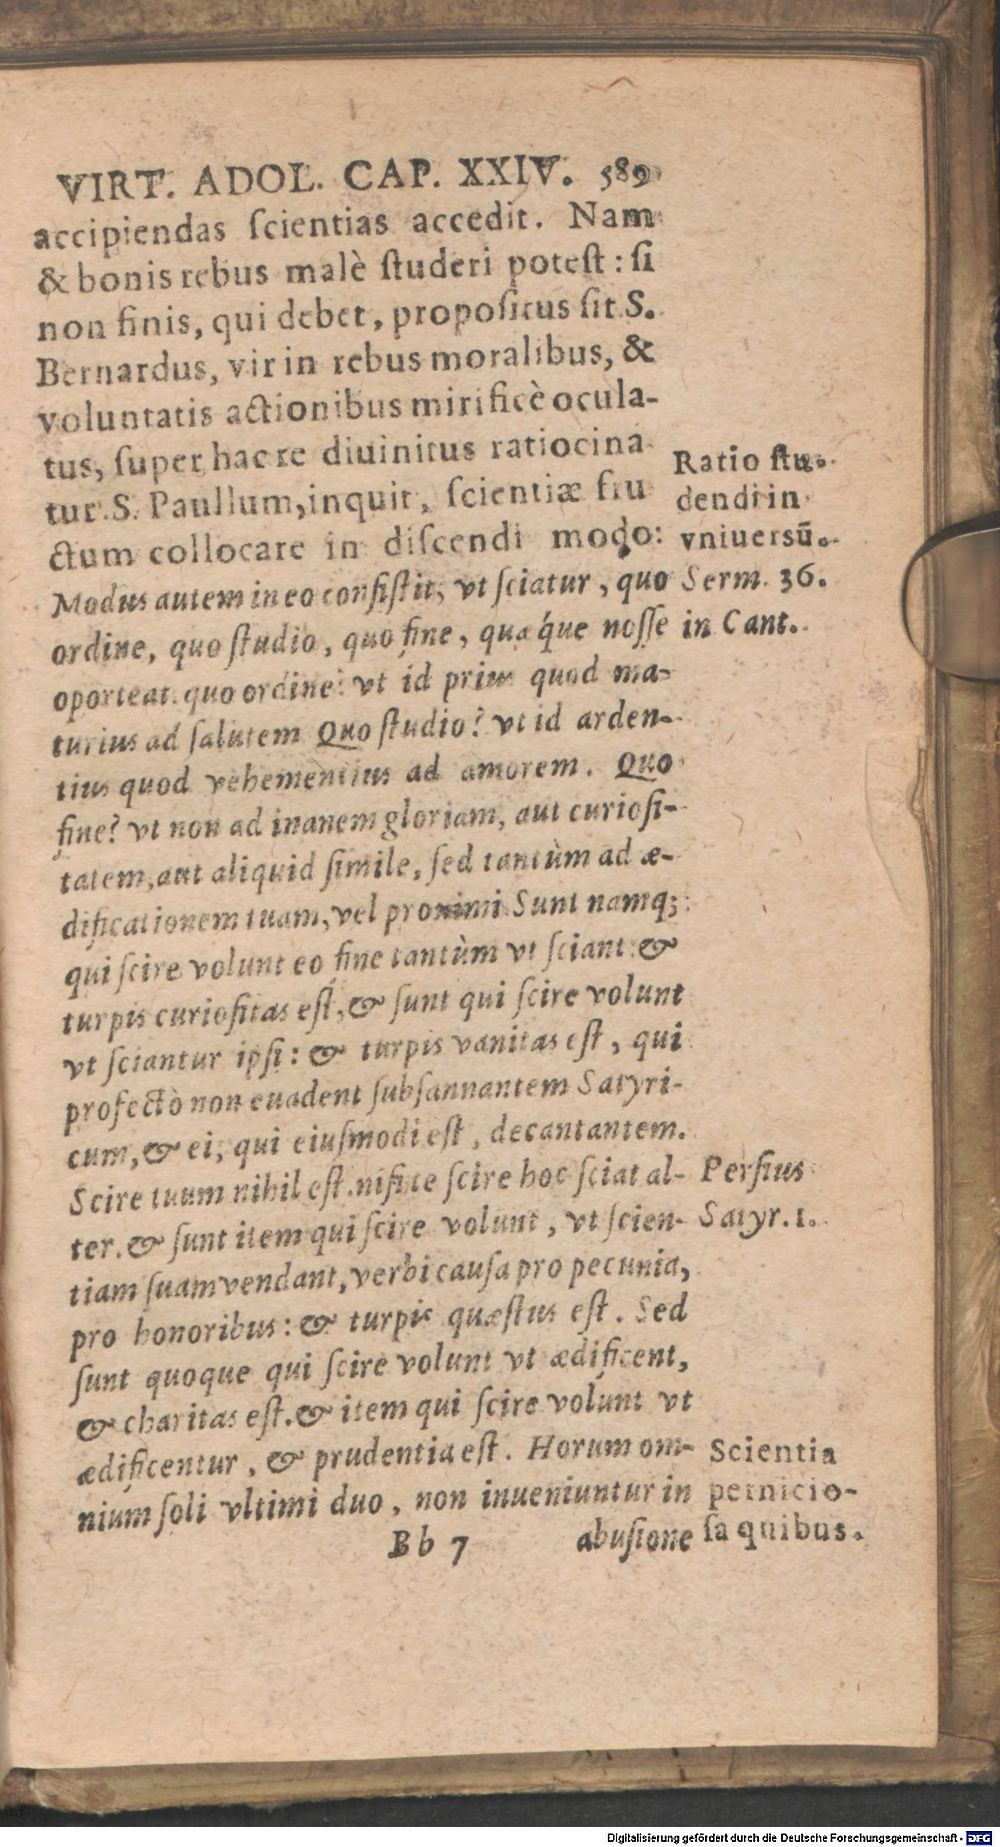 VIRT. ADOL. CAP. XXIV. 589
accipiendas ſcientias accedit. Nam
& bonis rebus malè ſtuderi poteſt: ſi
non finis, qui debet, propoſitus ſit. S.
Bernardus, vir in rebus moralibus, &
voluntatis actionibus mirificè ocula-
tus, ſuper hac re diuinitus ratiocina
tur. S. Paullum, inquit, ſcientiæ fru
ctum collocare in diſcendi modo:
Ratio ſtu-
dendi in
vniuersū.
Modus autem in eo conſiſtit, vt ſciatur, quo
ordine, quo ſtudio, quo fine, quæq́ue noſſe
Serm. 36.
in Cant.
oporteat. quo ordine? vt id prius quod ma-
turius ad ſalutem Quo ſtudio? vt id arden-
tius quod vehementius ad amorem. Quo
fine? vt non ad inanem gloriam, aut curioſi-
tatem, aut aliquid ſimile, ſed tantùm ad æ-
dificationem tuam, vel proximi Sunt namq;
qui ſcire volunt eo fine tantùm vt ſciant: &
turpis curioſitas eſt, & ſunt qui ſcire volunt
vt ſciantur ipſi: & turpis vanitas eſt, qui
profectò non euadent ſubſannantem Satyri-
cum, & ei, qui eiuſmodi eſt, decantantem.
Scire tuum nihil eſt. niſi te ſcire hoc ſciat al-
ter. & ſunt item qui ſcire volunt, vt ſcien-
Perſius
Satyr. 1.
tiam ſuam vendant, verbi cauſa pro pecunia,
pro honoribus: & turpis quæſtus eſt. Sed
ſunt quoque qui ſcire volunt vt ædificent,
& charitas eſt. & item qui ſcire volunt vt
ædificentur, & prudentia eſt. Horum om-
nium ſoli vltimi duo, non inueniuntur in
Scientia
pernicio-
ſa quibus.
Bb 7 abuſione
Digitalisierung gefördert durch die Deutsche Forschungsgemeinschaft - DFG